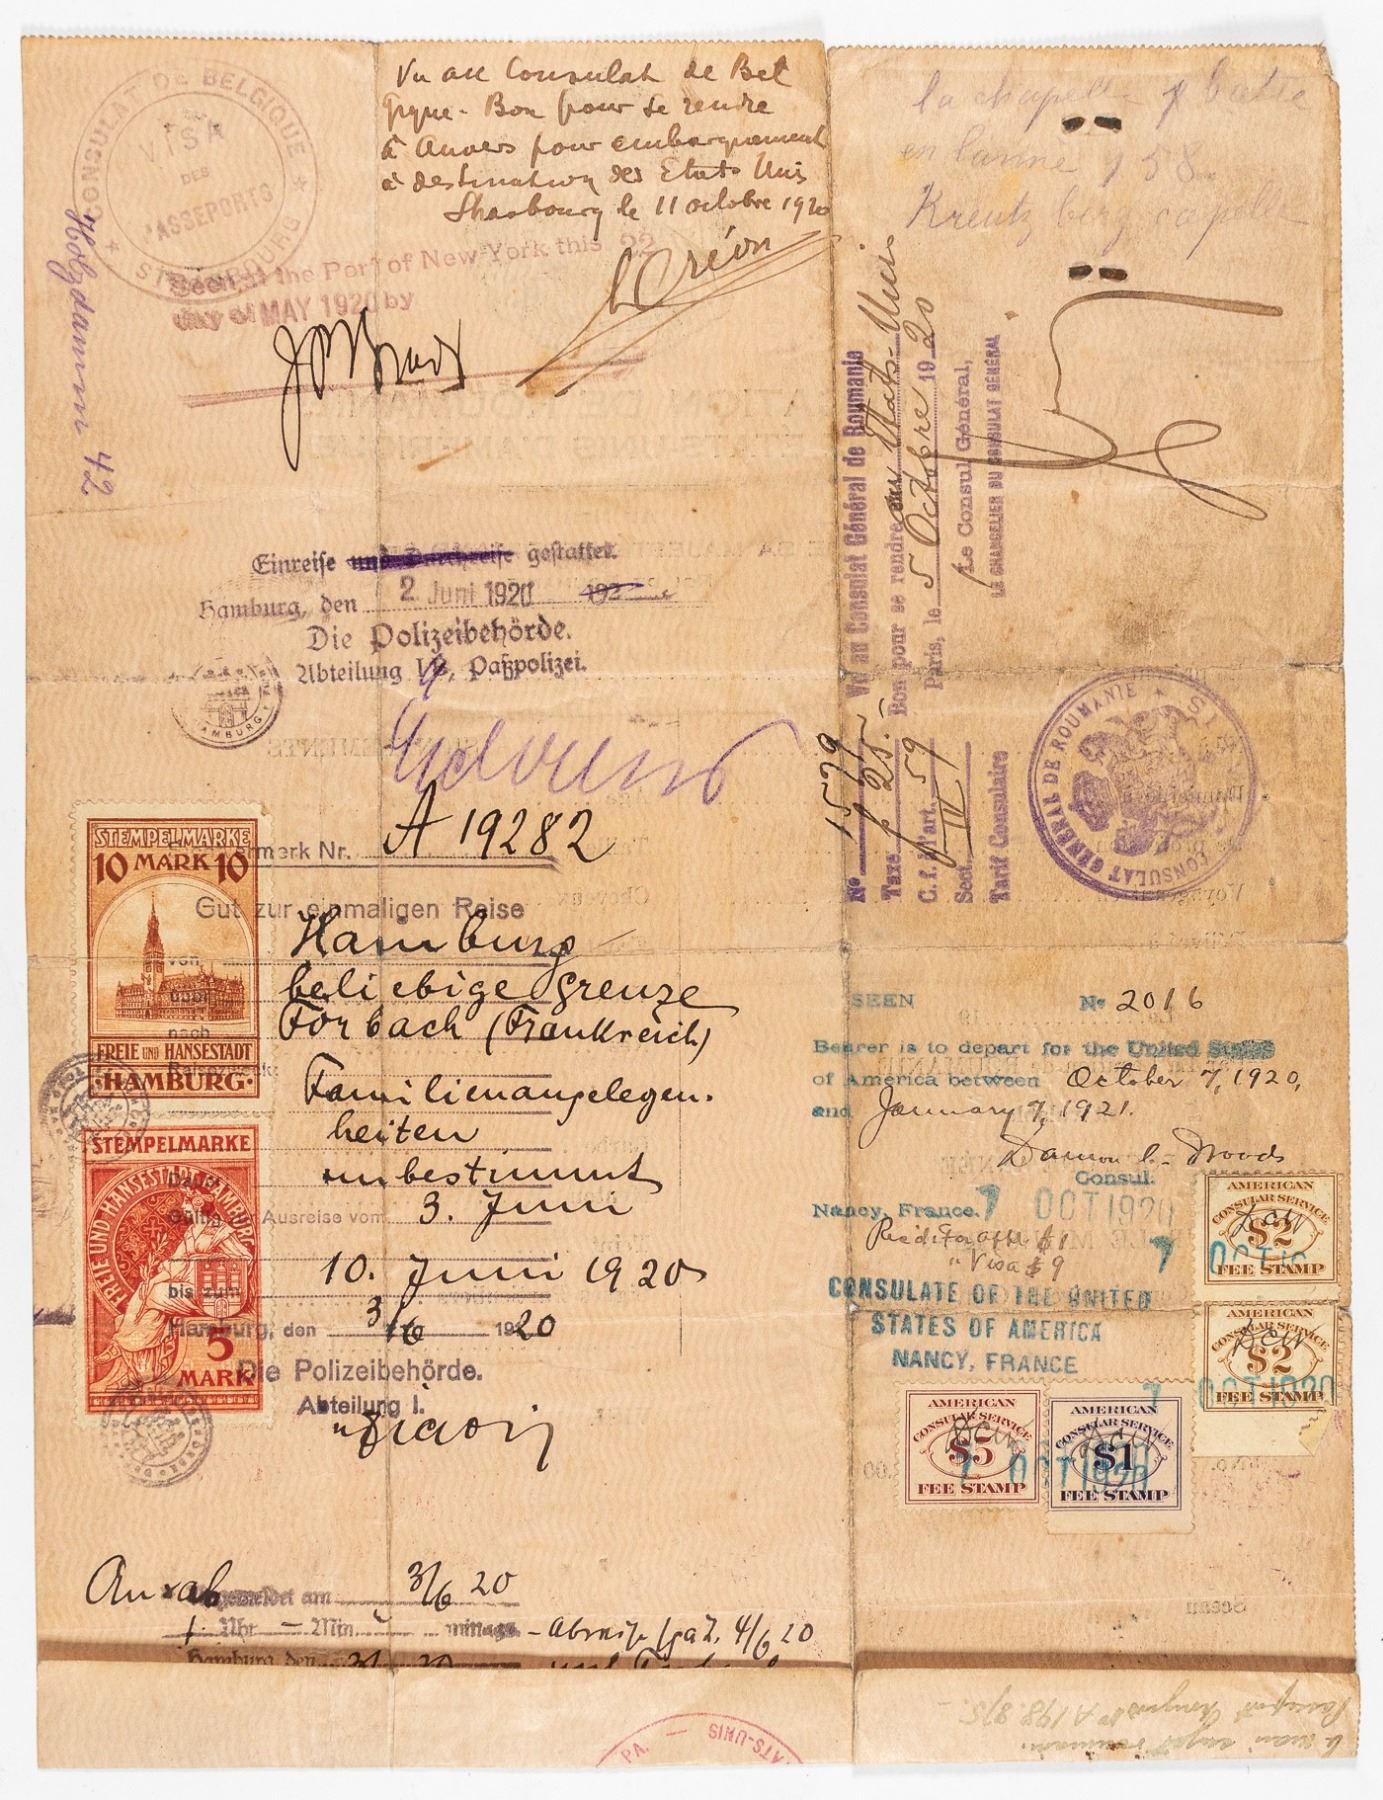 CONSULAT DE BELGIQUE
VISA
DES
PASSEPORTS
STRASBOURG
Vu au Consulat de Bel
gique - Bon pour se rendre
à Anvers pour embarquement
à destination des Etats Unis
Strasbourg le 11 octobre 1920
Seen at the Port of New York this 22
day of MAY 1920 by
Holzdamm 42
Einreise und Durchreise gestattet.
Hamburg, den 2 Juni 1920 192
Die Polizeibehörde.
Abteilung Paßpolizei.
HAMBURG
STEMPELMARKE
10 MARK 10
FREIE UND HANSESTADT
HAMBURG
STEMPELMARKE
FREIE UND HANSESTADT HAMBURG
5
MARK
vermerk Nr. A 19282
Gut zur einmaligen Reise
von Hamburg
über beliebige Grenze
nach Forbach (Frankreich)
Reisezweck: Familienangelegen-
heiten
Dauer unbestimmt
Gültig zur Ausreise vom 3. Juni
bis zum 10. Juni 1920
Hamburg, den 3/6 1920
Die Polizeibehörde.
Abteilung I.
An x abgemeldet am 3/6 20
1 Uhr - Min mittags - 4/6 20
Hamburg den 3/ 20
PA. — ATS-UNIS
la chapelle
en lanne 158
Kreutzberg capelle
No 1579 Vu au Consulat Général de Roumanie
Taxe f 25.- Bon pour se rendre aux Etats-Unis
C. f. l'art. 59 Paris, le 5 Octobre 1920
Sect. IV Le Consul Général,
Tarif Consulaire LE CHANCELIER DU CONSULAT GÉNÉRAL
CONSULAT GÉNÉRAL DE ROUMANIE
SEEN No 2016
Bearer is to depart for the United States
of America between October 7, 1920,
and January 7, 1921.
Damon C. Woods
Consul.
Nancy, France. 7 OCT 1920
$1
" Visa $9
7
CONSULATE OF THE UNITED
STATES OF AMERICA
NANCY, FRANCE
AMERICAN
CONSULAR SERVICE
$2
DCW
OCT 19
FEE STAMP
AMERICAN
CONSULAR SERVICE
$2
DCW
7 OCT 1920
FEE STAMP
AMERICAN
CONSULAR SERVICE
$5
DCW
FEE STAMP
AMERICAN
CONSULAR SERVICE
$1
DCW
7 OCT 1920
FEE STAMP